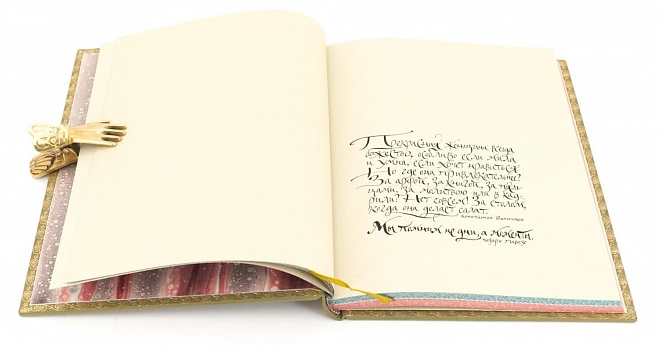 Прекрасная женщина всегда
божество, особливо если мила
и умна, если хочет нравиться.
Но где она привлекательнее?
За арфой, за книгой, за пяль-
цами, за молитвою или в кад-
рили? Нет совсем! За столом,
когда она делает салат.
константин Батюшков
Мы помним не дни, а моменты.
чезаре павезе